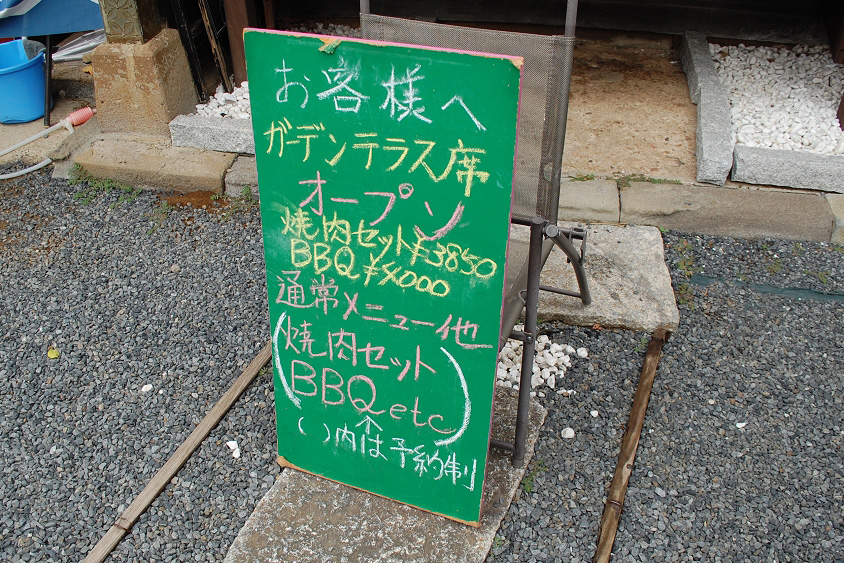 お客様へ
ガーデンテラス席
オープン
焼肉セット¥3850
BBQ ¥4000
通常メニュー他
(焼肉セット
BBQ etc)
↑
( )内は予約制